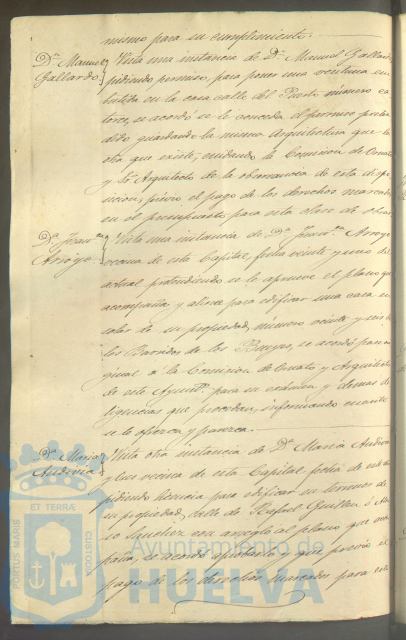 mismo para su cumplimiento.
Dn. Manuel Gallardo. Vista una instancia de Dn. Manuel Gallardo
pidiendo permiso, para poner una ventana en
la casa calle del Puerto número ca
torce, se acordó se le conceda el permiso pre
dido guardando la misma Arquitectura que la
obra que existe, cuidando la Comisión de Ornato
y Sor. Arquitecto de la observancia de esta dispo
sicion, previo el pago de los derechos marcados
en el presupuesto para esta clase de obras
Da. Joaqna. Arroyo. Vista una instancia de Da. Joaqna. Arroyo
vecina de esta Capital, fecha veinte y uno del
actual pretendiendo se le apruebe el plano que
acompaña y alinee para edificar una casa en
solar de su propiedad, número veinte y seis
los Barrados de los, se acordó pase ori
ginal a la Comisión de Ornato y Arquitecto
de este Ayuntº. para su examen y demas di
ligencias que procedan, informando cuanto
se le ofrezca y parezca.
Da. Maria Andivia. Vista otra instancia de Da. Maria Andivia
vecina de esta Capital fecha de
pidiendo licencia para edificar en terreno de
su propiedad, calle de Rafael Guillen
Sanchez con arreglo al plano que acom
paña, se acordó y que previo el
pago de los derechos marcados para esta
PORTUS MARIS
ET TERRÆ
CUSTODIA
Ayuntamiento de
HUELVA